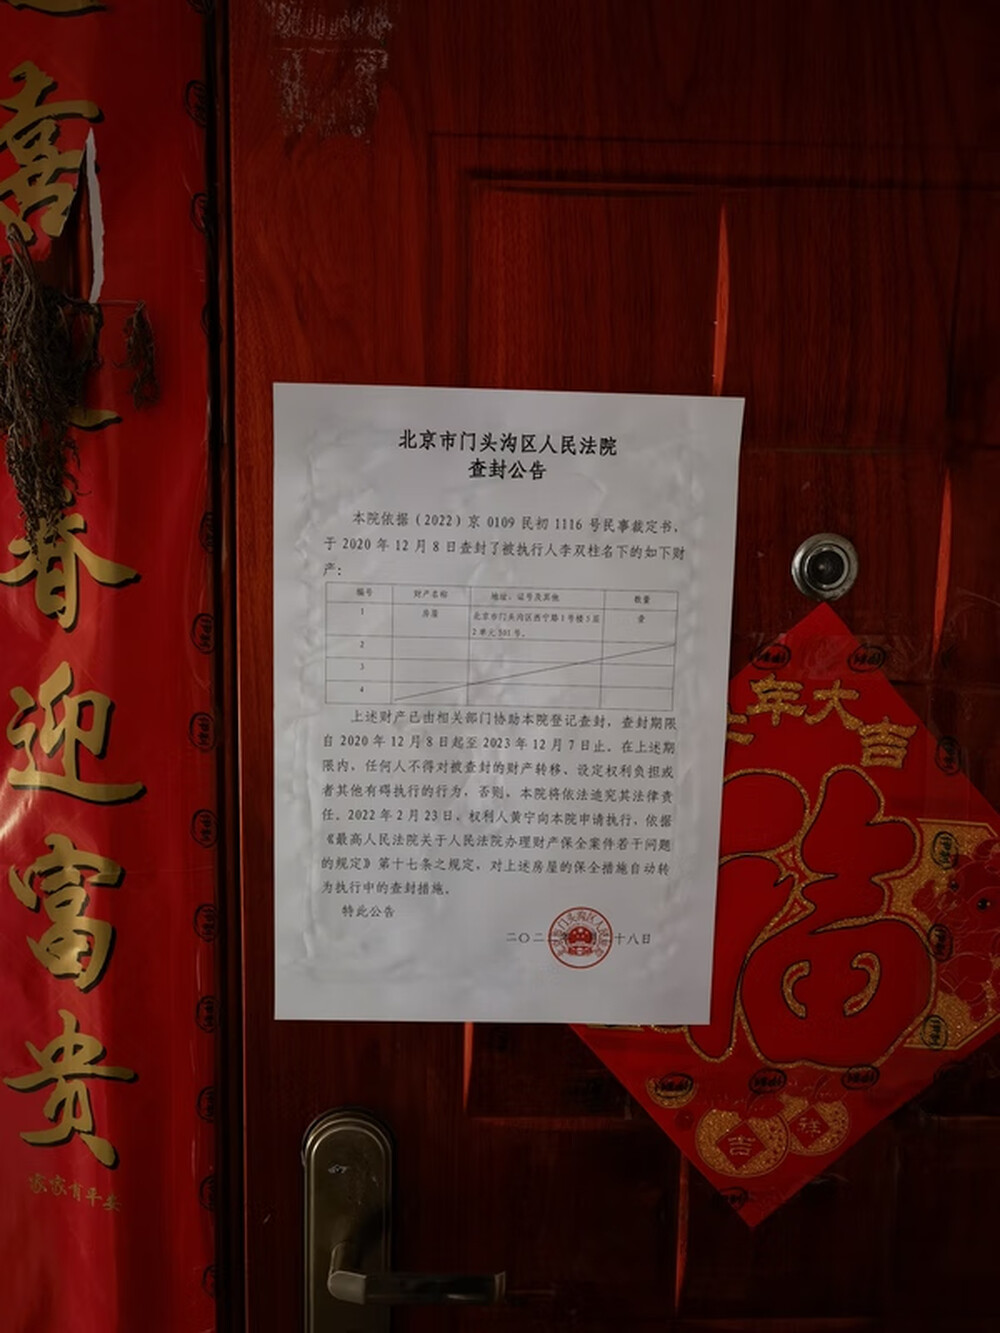 喜
春
迎
富
贵
家家有平安
北京市门头沟区人民法院
查封公告
本院依据（2022）京 0109 民初 1116 号民事裁定书，
于 2020 年 12 月 8 日查封了被执行人李双柱名下的如下财
产：
编号 财产名称 地址、证号及其他 数量
1 房屋 北京市门头沟区西宁路1号楼5层 壹
2单元501号。
2
3
4
上述财产已由相关部门协助本院登记查封，查封期限
自 2020 年 12 月 8 日起至 2023 年 12 月 7 日止。在上述期
限内，任何人不得对被查封的财产转移、设定权利负担或
者其他有碍执行的行为，否则，本院将依法追究其法律责
任。2022 年 2 月 23 日，权利人黄宁向本院申请执行，依据
《最高人民法院关于人民法院办理财产保全案件若干问题
的规定》第十七条之规定，对上述房屋的保全措施自动转
为执行中的查封措施。
特此公告
二〇二 十八日
年大吉
福
吉 祥